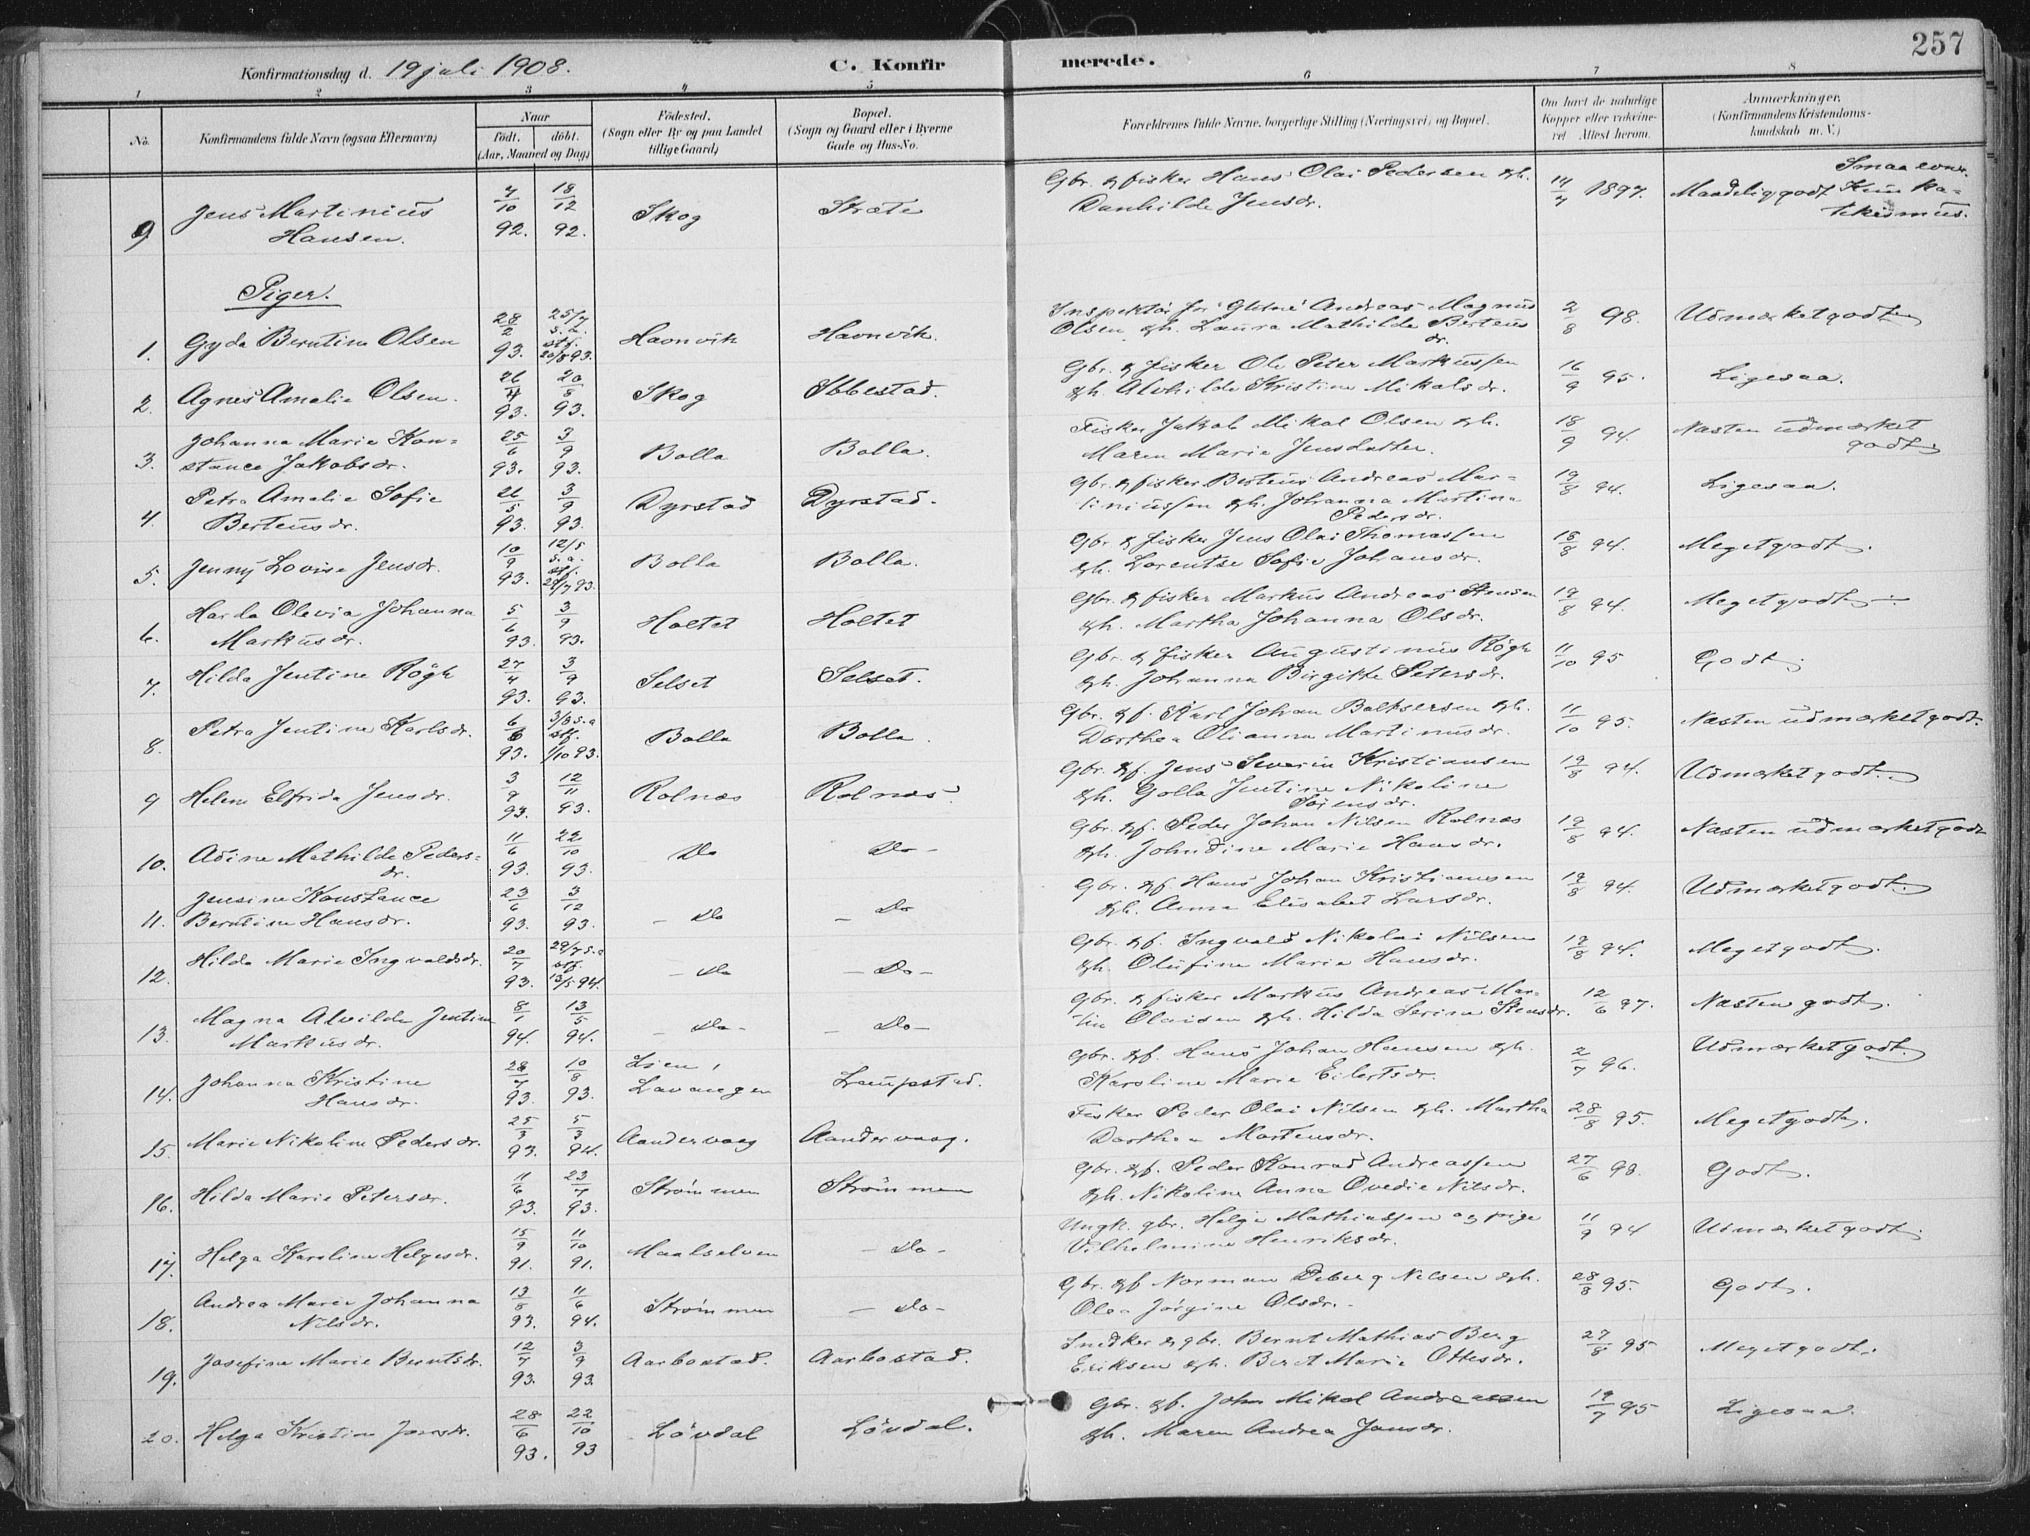 257
Konfirmationsdag d. 19 juli 1908. C. Konfir merede.
1 2 3 4 5 6 7 8
No. Konfirmandens fulde Navn (ogsaa Efternavn) Naar Födt. döbt. (Aar, Maaned og Dag) Födested. (Sogn eller By og paa Landet tillige Gaard) Bopæl. (Sogn og Gaard eller i Byerne Gade og Hus-No. Forældrenes fulde Navne, borgerlige Stilling (Næringsvei) og Bopæl. Om havt de naturlige Kopper eller vakcineret Attest herom. Anmærkninger. (Konfirmandens Kristendomskundskab m. V.)
9 Jens Martinius Hansen. 7/10 92. 18/12 92. Skog Stræte Gbr. & fisker Hans Olai Pedersen & h. Danhilde Jensdr. 14/7 1897. Maadelig godt Kun katekismus.
Piger.
1. Gyda Berntine Olsen 28/2 93. 25/7 s.a. stf. 20/8 93. Havnvik Havnvik. Inspektör Andreas Magnus Olsen & h. Laura Mathilde Berteusdr. 2/8 98. Udmerket godt
2. Agnes Amalie Olsen. 26/4 93. 20/8 93. Skog Ibbestad. Gbr. & fisker Ole Peter Markussen & h. Alvhilde Kristine Mikalsdr. 16/9 95. Ligesaa.
3. Johanna Marie Konstance Jakobsdr. 25/6 93. 3/9 93. Bolla Bolla. Fisker Jakob Mikal Olsen & h. Maren Marie Jensdatter. 18/9 94. Næsten udmerket godt
4. Petra Amalie Sofie Berteusdr. 26/5 93. 3/9 93. Dyrstad Dyrstad. Gbr. & fisker Berteus Andreas Martiniussen & h. Johanna Martina Pedersdr. 19/8 94. Ligesaa.
5. Jenny Lovise Jensdr. 10/9 93. 12/5 s.a. stf. 93. Bolla Bolla. Gbr. & fisker Jens Olai Thomassen & h. Lorentse Sofie Johansdr. 18/8 94. Meget godt.
6. Harda Olevia Johanna Markusdr. 5/6 93. 3/9 93. Holtet Holtet Gbr. & fisker Markus Andreas Stensen & h. Martha Johanna Olsdr. 19/8 94. Meget godt
7. Hilda Jentine Rögh 27/4 93. 3/9 93. Selset Selset. Gbr. & fisker Augustinus Rögh & h. Johanna Birgitte Petersdr. 11/10 95 Godt
8. Petra Jentine Karlsdr. 6/6 93. 3/8 s.a stf. 1/10 93. Bolla Bolla. Gbr. & f. Karl Johan Baltsersen & h. Dorthea Olianna Martinusdr. 11/10 95. Næsten udmerket godt.
9 Helene Elfrida Jensdr. 3/9 93. 12/11 93. Rolnæs Rolnæs. Gbr. & f. Jens Severin Kristiansen & h. Golla Jentine Nikoline Sörensdr. 19/8 94. Udmerket godt.
10. Adine Mathilde Pedersdr. 11/6 93. 22/10 93. Do Do - Gbr. & f. Peder Johan Nilsen Rolnæs & h. Johndine Marie Hansdr. 19/8 94. Næsten udmerket godt
11. Jensine Konstance Berntine Hansdr. 23/6 93. 3/12 93. - Do - Do Gbr. & f. Hans Johan Kristiansen & h. Anna Elisabet Larsdr. 19/8 94. Udmerket godt.
12. Hilda Marie Ingvaldsdr. 20/7 93. 29/7 s.a stf. 13/5 94. - Do - Do - Gbr. & f. Ingvald Nikolai Nilsen & h. Olufine Marie Hansdr. 19/8 94. Meget godt.
13. Magna Alvilde Jentine Markusdr. 8/1 94. 13/5 94. - Do - - Do - Gbr. & fisker Markus Andreas Martin Olaisen & h. Hilda Serine Stensdr. 12/6 97. Næsten godt.
14. Johanna Kristine Hansdr. 28/7 93. 10/8 93. Lien, Lavangen Laupstad. Gbr. & f. Hans Johan Hansen & h. Karoline Marie Eilertsdr. 2/7 96. Udmerket godt.
15. Marie Nikoline Pedersdr. 25/3 93. 5/3 94. Aandervaag Aandervaag. Fisker Peder Olai Nilsen & h. Martha Dorthea Mortensdr. 28/8 95. Meget godt.
16. Hilda Marie Petersdr. 11/6 93. 23/7 93. Strömmen Strömmen Gbr. & f. Peder Konrad Andreassen & h. Nikoline Anna Ovedie Nilsdr. 27/6 98. Godt.
17. Helga Karoline Helgesdr. 15/9 91. 11/10 91. Maalselven - Do - Ungk. gbr. Helge Mathiassen og pige Vilhelmine Henriksdr. 11/9 94 Udmerket godt.
18. Andrea Marie Johanna Nilsdr. 13/8 93. 11/6 94. Strömmen - Do - Gbr. & f Norman Deberg Nilsen & h. Olea Jörgine Olsdr. 28/8 95. Godt.
19. Josefine Marie Berntsdr. 12/7 93. 3/9 93. Aarbostad. Aarbostad. Snedker & gbr. Bernt Mathias Berg Eriksen & h. Berit Marie Ottesdr. 27/8 95 Meget godt.
20. Helga Kristine Jonsdr. 28/6 93. 22/10 93 Lövdal Lövdal. Gbr. & f. John Mikal Andreassen & h. Maren Andrea Jensdr. 19/7 95 Ligesaa.